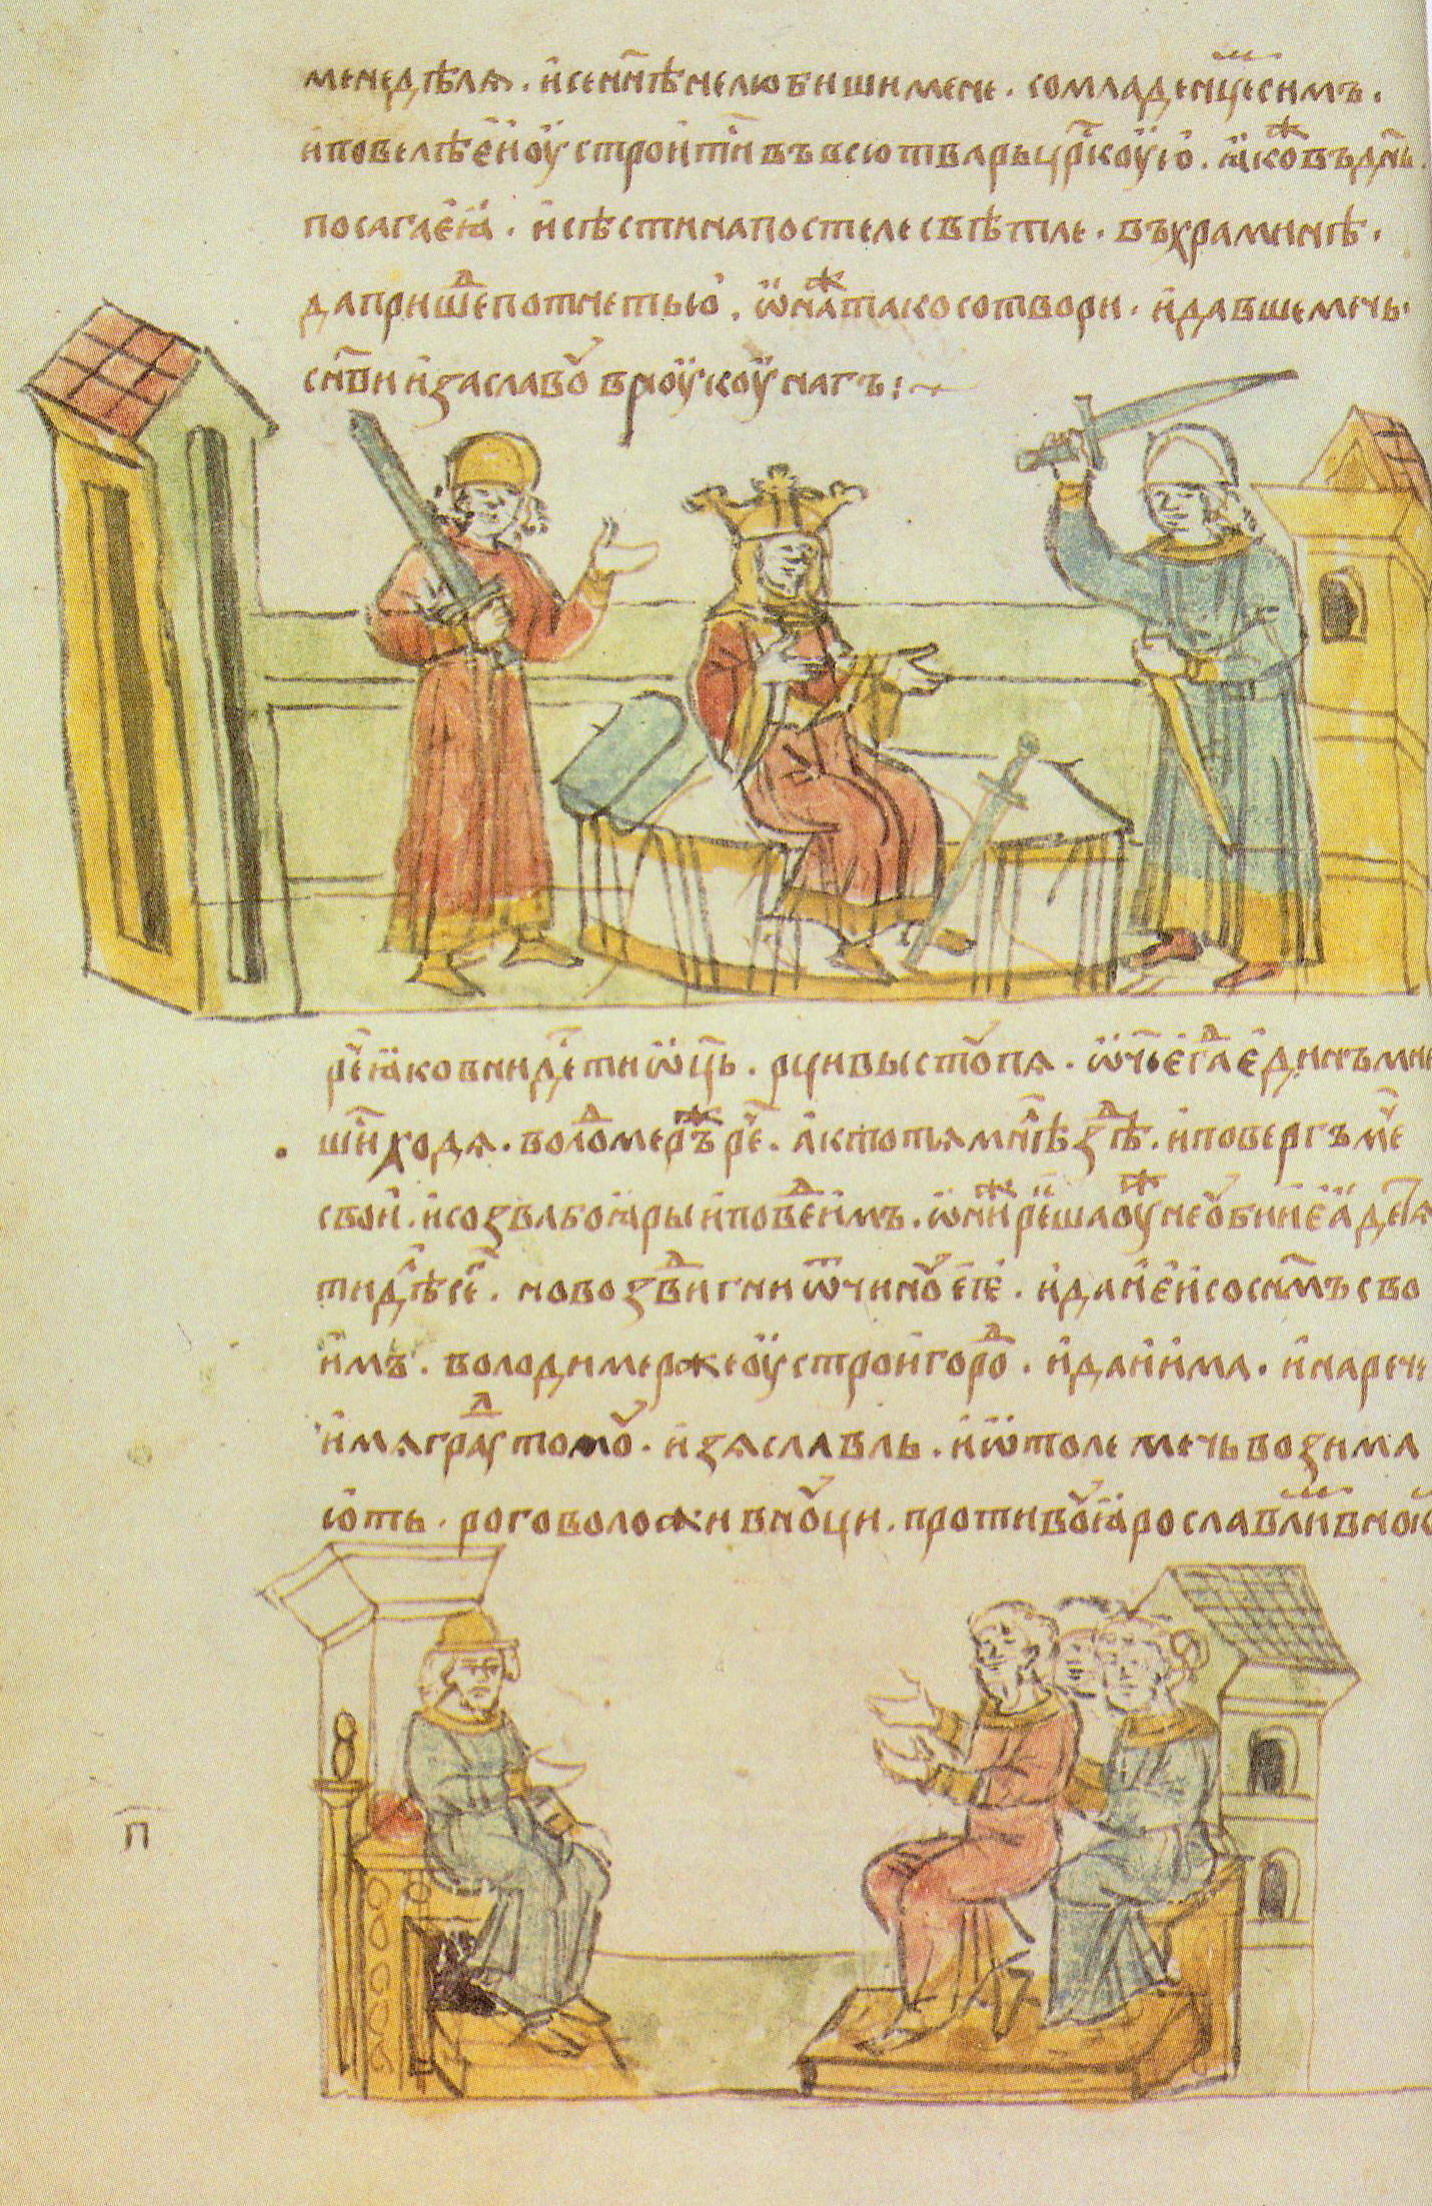 менедѣлѧ · и҆се нн҃ѣ нелюбиши мене · сомладенцеⷨ симъ ·
и҆повелѣ е҆и оу҆строитисѧ въ всю тварь црⷭ҇коую · ꙗ҆коⷤ въ дн҃ь
посагаеѧ · и҆ сѣсти на постеле свѣтле · въ храминѣ ·
да пришеⷣ потнеть ю҆ · ѡ҆наⷤ тако сотвори · и҆ давше мечь ·
сн҃ви и҆зѧславоу в роукоу нагъ :~
рⷱ҇е ꙗ҆ко внидеⷮ ти ѡ҆ц҃ь · рци выстоупѧ · ѡ҆ч҃е е҆гда е҆динъ мни
шиⷭ҇ ходѧ · волоⷣмеръⷤ рⷱ҇е · а҆ кто тѧ мнѣⷧ҇ здѣ · и҆ повергъ меⷱ҇
свои҆ · и҆ созва боꙗры и҆ повеⷣ и҆мъ · ѡ҆ниⷤ рѣша оуⷤ не оубии е҆ꙗ дѣтѧ
ти дѣлѧ сеⷢ҇ · но воздвигни ѿчиноу е҆ѣ · и҆ даи е҆и со сн҃омъ сво
и҆мъ · володимерже оу҆строи гороⷣ · и҆ да и҆ма · и҆ нарече
и҆мѧ градоу томоу · и҆зѧславль · и҆ ѿтоле мечь возима
ють · роговоложи вноуци · противоу ꙗ҆рославлиⷨ вноукоⷨ
п҃